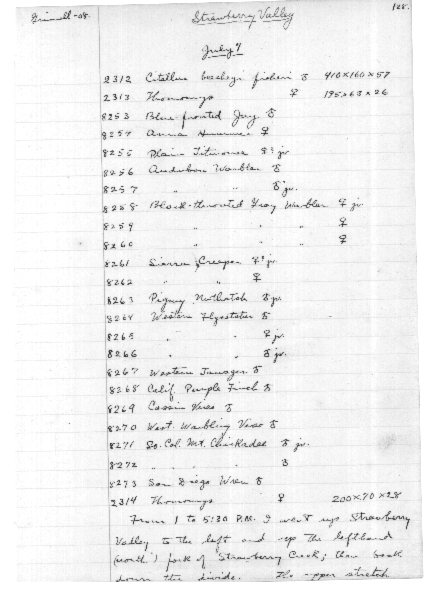 Grinnell-08. Strawberry Valley 128.
July 7
2312 Citellus beecheyi fisheri ♂ 410×160×57
2313 Thomomys ♀ 195×63×26
8253 Blue-fronted Jay ♂
8254 Anna Hummer ♀
8255 Plain Titmouse ♀? jv.
8256 Audubon Warbler ♂
8257 " " ♂ jv.
8258 Black-throated Gray Warbler ♀ jv
8259 " " " ♀
8260 " " " ♀
8261 Sierra Creeper ♀? jv.
8262 " " ♀
8263 Pigmy Nuthatch ♂ jv.
8264 Western Flycatcher ♂
8265 " " ♀ jv.
8266 " " ♂ jv.
8267 Western Tanager ♂
8268 Calif. Purple Finch ♂
8269 Cassin Vireo ♂
8270 West. Warbling Vireo ♂
8271 So. Cal. Mt. Chickadee ♂ jv.
8272 " " " ♂
8273 San Diego Wren ♂
2314 Thomomys ♀ 200×70×28
From 1 to 5:30 P.M. I went up Strawberry
Valley to the left and up the lefthand
(north) fork of Strawberry Creek; then back
down the divide. The upper stretch